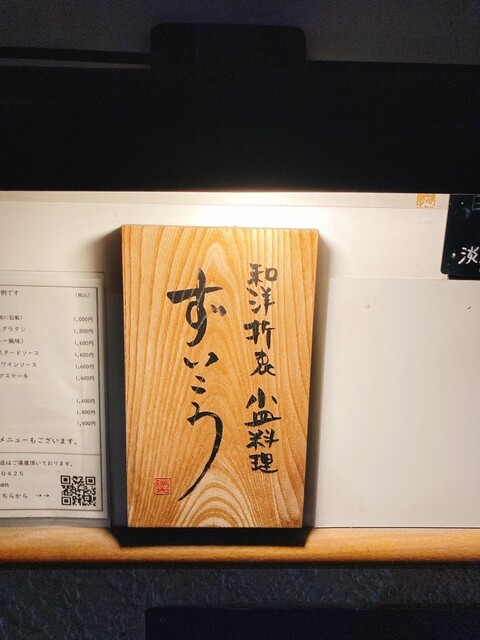 和洋折衷 小皿料理
ずいこう
例です
(税込)
に記載)
1,000円
グラタン
1,800円
ー風味)
1,600円
スタードソース
1,600円
ワインソース
1,600円
グステーキ
1,600円
1,600円
1,800円
1,600円
メニューもございます。
店はご遠慮頂いております。
0425
ちらから →→
淡